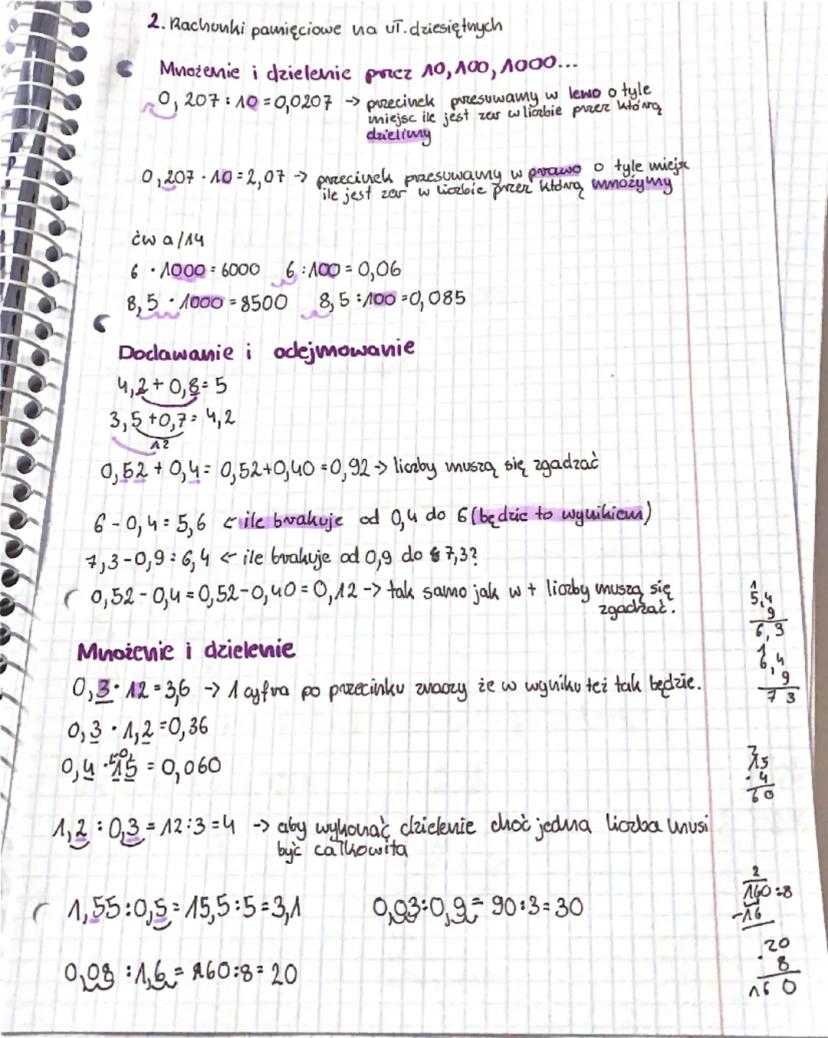 2. Rachunki pamięciowe na uł. dziesiętnych
Mnożenie i dzielenie przez 10, 100, 1000...
0,207 : 10 = 0,0207 → przecinek przesuwamy w lewo o tyle
miejsc ile jest zer w liczbie przez którą
dzielimy
0,207 · 10 = 2,07 → przecinek przesuwamy w prawo o tyle miejsc
ile jest zer w liczbie przez którą mnożymy
ćw a/14
6 · 1000 = 6000 6 : 100 = 0,06
8,5 · 1000 = 8500 8,5 : 100 = 0,085
Dodawanie i odejmowanie
4,2 + 0,8 = 5
3,5 + 0,7 = 4,2
12
0,52 + 0,4 = 0,52 + 0,40 = 0,92 → liczby muszą się zgadzać
6 - 0,4 = 5,6 ← ile brakuje od 0,4 do 6 (będzie to wynikiem)
7,3 - 0,9 = 6,4 ← ile brakuje od 0,9 do 7,3?
0,52 - 0,4 = 0,52 - 0,40 = 0,12 → tak samo jak w + liczby muszą się
zgadzać.
1
5,4
9
6,3
1
6,4
,9
7 3
Mnożenie i dzielenie
0,3 · 12 = 3,6 → 1 cyfra po przecinku znaczy że w wyniku też tak będzie.
0,3 · 1,2 = 0,36
0,4 · 15 = 0,060
2
15
· 4
60
1,2 : 0,3 = 12 : 3 = 4 → aby wykonać dzielenie choć jedna liczba musi
być całkowita
1,55 : 0,5 = 15,5 : 5 = 3,1 0,03 : 0,9 = 90 : 3 = 30
0,08 : 1,6 = 160 : 8 = 20
2
160 : 8
-16
20
· 8
16 0